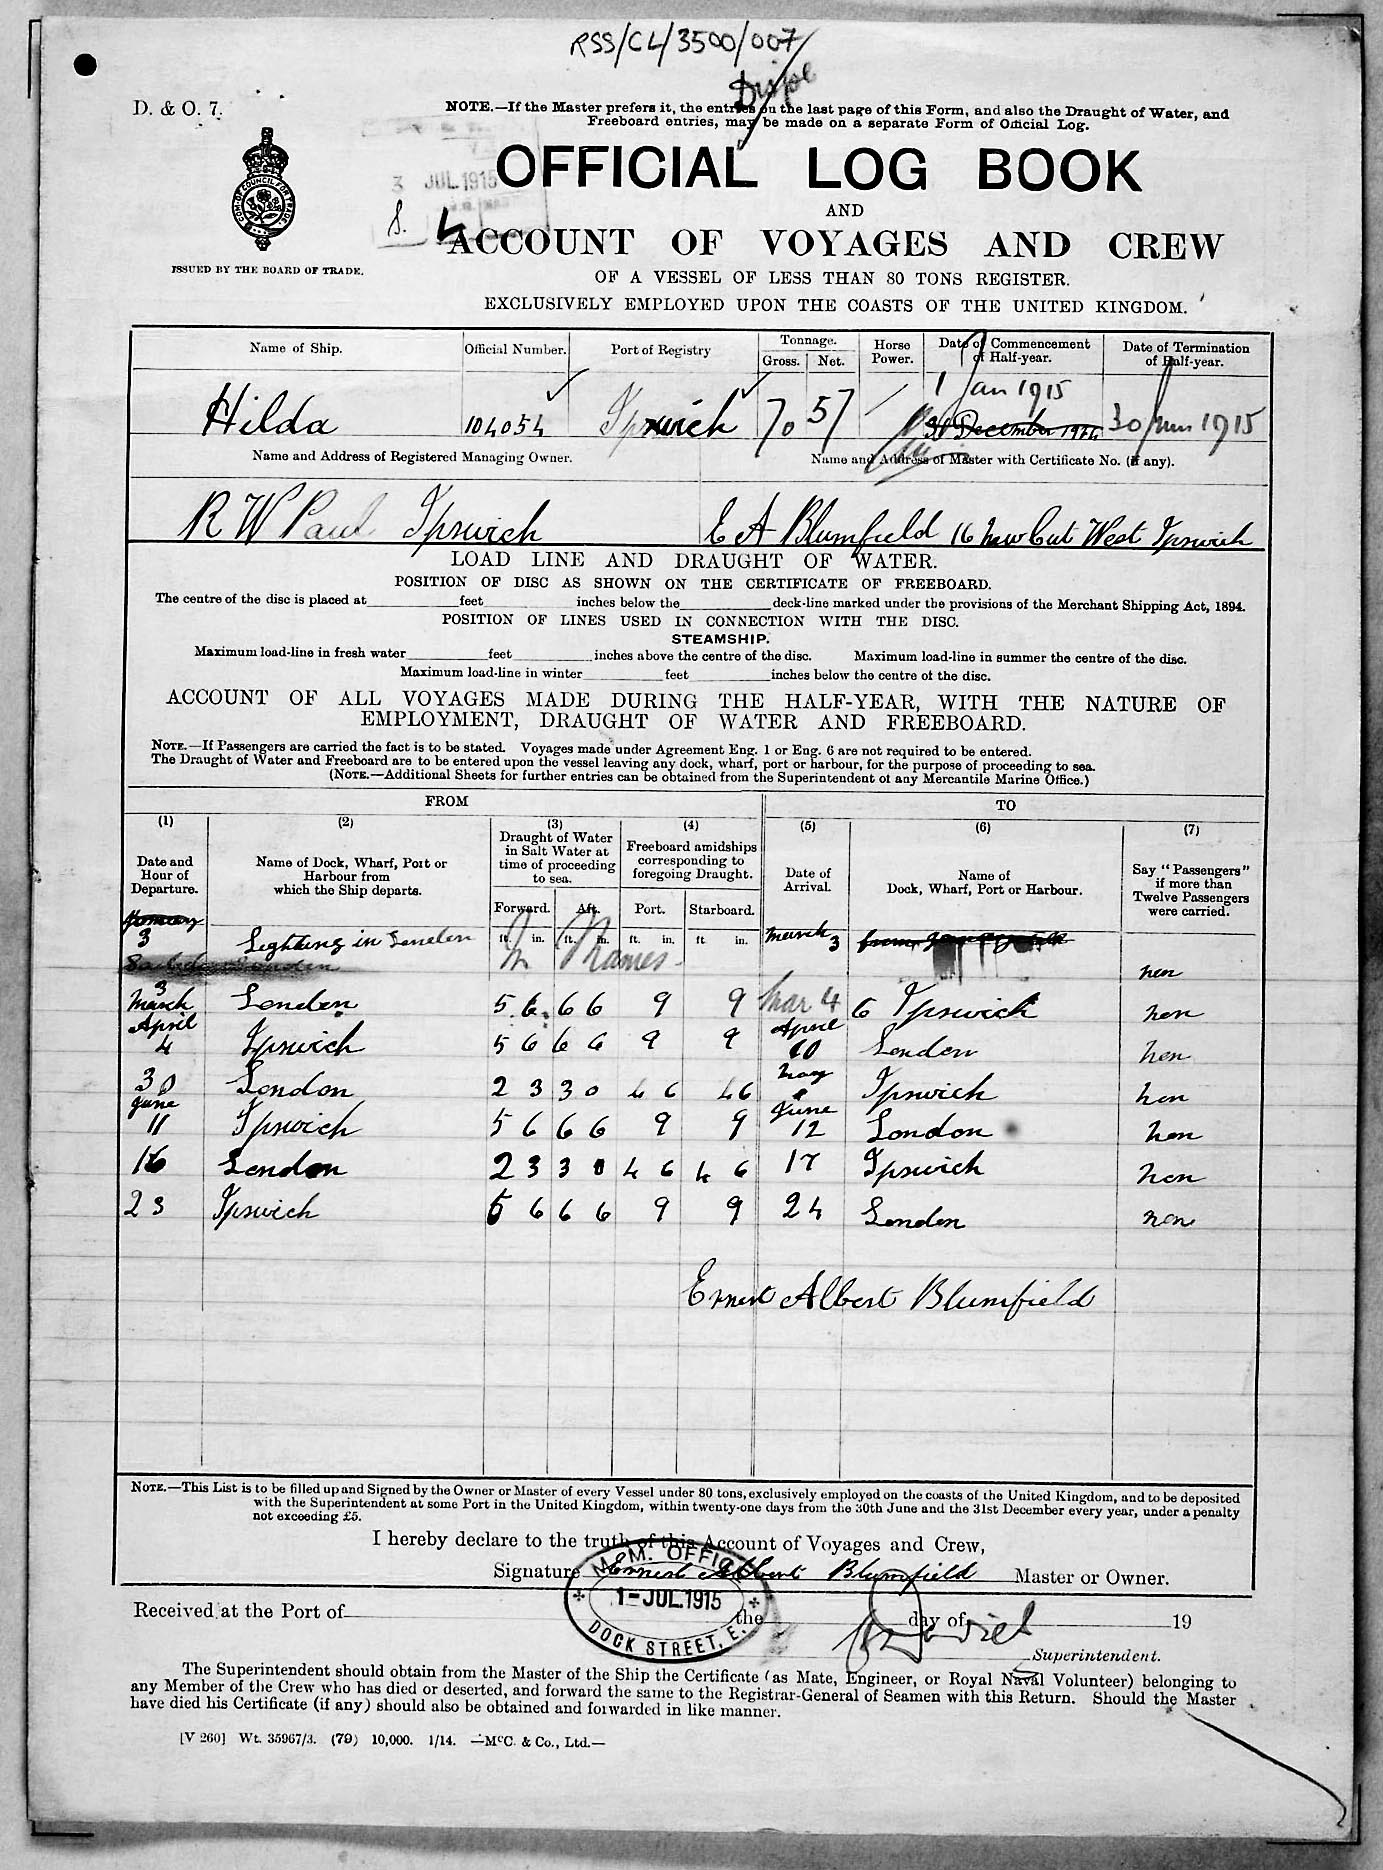 RSS/CL/3500/007
D. & O. 7.
NOTE.—If the Master prefers it, the entries on the last page of this Form, and also the Draught of Water, and
Freeboard entries, may be made on a separate Form of Official Log.
3 JUL 1915
OFFICIAL LOG BOOK
AND
S.
ACCOUNT OF VOYAGES AND CREW
COM. OF COUNCIL FOR TRADE
ISSUED BY THE BOARD OF TRADE.
OF A VESSEL OF LESS THAN 80 TONS REGISTER.
EXCLUSIVELY EMPLOYED UPON THE COASTS OF THE UNITED KINGDOM.
Name of Ship. Official Number. Port of Registry Tonnage. Gross. Net. Horse Power. Date of Commencement of Half-year. Date of Termination of Half-year.
1 Jan 1915
Hilda 104054 Ipswich 70 57 31 December 1914 30 Jun 1915
Name and Address of Registered Managing Owner. Name and Address of Master with Certificate No. (if any).
R W Paul Ipswich E A Blumfield 16 New Cut West Ipswich
LOAD LINE AND DRAUGHT OF WATER.
POSITION OF DISC AS SHOWN ON THE CERTIFICATE OF FREEBOARD.
The centre of the disc is placed at feet inches below the deck-line marked under the provisions of the Merchant Shipping Act, 1894.
POSITION OF LINES USED IN CONNECTION WITH THE DISC.
STEAMSHIP.
Maximum load-line in fresh water feet inches above the centre of the disc. Maximum load-line in summer the centre of the disc.
Maximum load-line in winter feet inches below the centre of the disc.
ACCOUNT OF ALL VOYAGES MADE DURING THE HALF-YEAR, WITH THE NATURE OF
EMPLOYMENT, DRAUGHT OF WATER AND FREEBOARD.
NOTE.—If Passengers are carried the fact is to be stated. Voyages made under Agreement Eng. 1 or Eng. 6 are not required to be entered.
The Draught of Water and Freeboard are to be entered upon the vessel leaving any dock, wharf, port or harbour, for the purpose of proceeding to sea.
(NOTE.—Additional Sheets for further entries can be obtained from the Superintendent of any Mercantile Marine Office.)
FROM TO
(1) (2) (3) (4) (5) (6) (7)
Date and Hour of Departure. Name of Dock, Wharf, Port or Harbour from which the Ship departs. Draught of Water in Salt Water at time of proceeding to sea. Freeboard amidships corresponding to foregoing Draught. Date of Arrival. Name of Dock, Wharf, Port or Harbour. Say "Passengers" if more than Twelve Passengers were carried.
Forward. Aft. Port. Starboard.
ft. in. ft. in. ft. in. ft. in.
January
3 Lighting in London In Thames March 3
non
3
March London 5 6 6 6 9 9 Mar 4 6 Ipswich non
April
4 Ipswich 5 6 6 6 9 9 April 10 London non
30 London 2 3 3 0 4 6 4 6 May Ipswich non
June
11 Ipswich 5 6 6 6 9 9 June 12 London non
16 London 2 3 3 0 4 6 4 6 17 Ipswich non
23 Ipswich 5 6 6 6 9 9 24 London non
Ernest Albert Blumfield
NOTE.—This List is to be filled up and Signed by the Owner or Master of every Vessel under 80 tons, exclusively employed on the coasts of the United Kingdom, and to be deposited
with the Superintendent at some Port in the United Kingdom, within twenty-one days from the 30th June and the 31st December every year, under a penalty
not exceeding £5.
I hereby declare to the truth of this Account of Voyages and Crew,
Signature Ernest Albert Blumfield Master or Owner.
M.M. OFFICE
1-JUL.1915
DOCK STREET, E.
Received at the Port of the day of 19
Superintendent.
The Superintendent should obtain from the Master of the Ship the Certificate (as Mate, Engineer, or Royal Naval Volunteer) belonging to
any Member of the Crew who has died or deserted, and forward the same to the Registrar-General of Seamen with this Return. Should the Master
have died his Certificate (if any) should also be obtained and forwarded in like manner.
[V 260] Wt. 35967/3. (79) 10,000. 1/14. —McC. & Co., Ltd.—